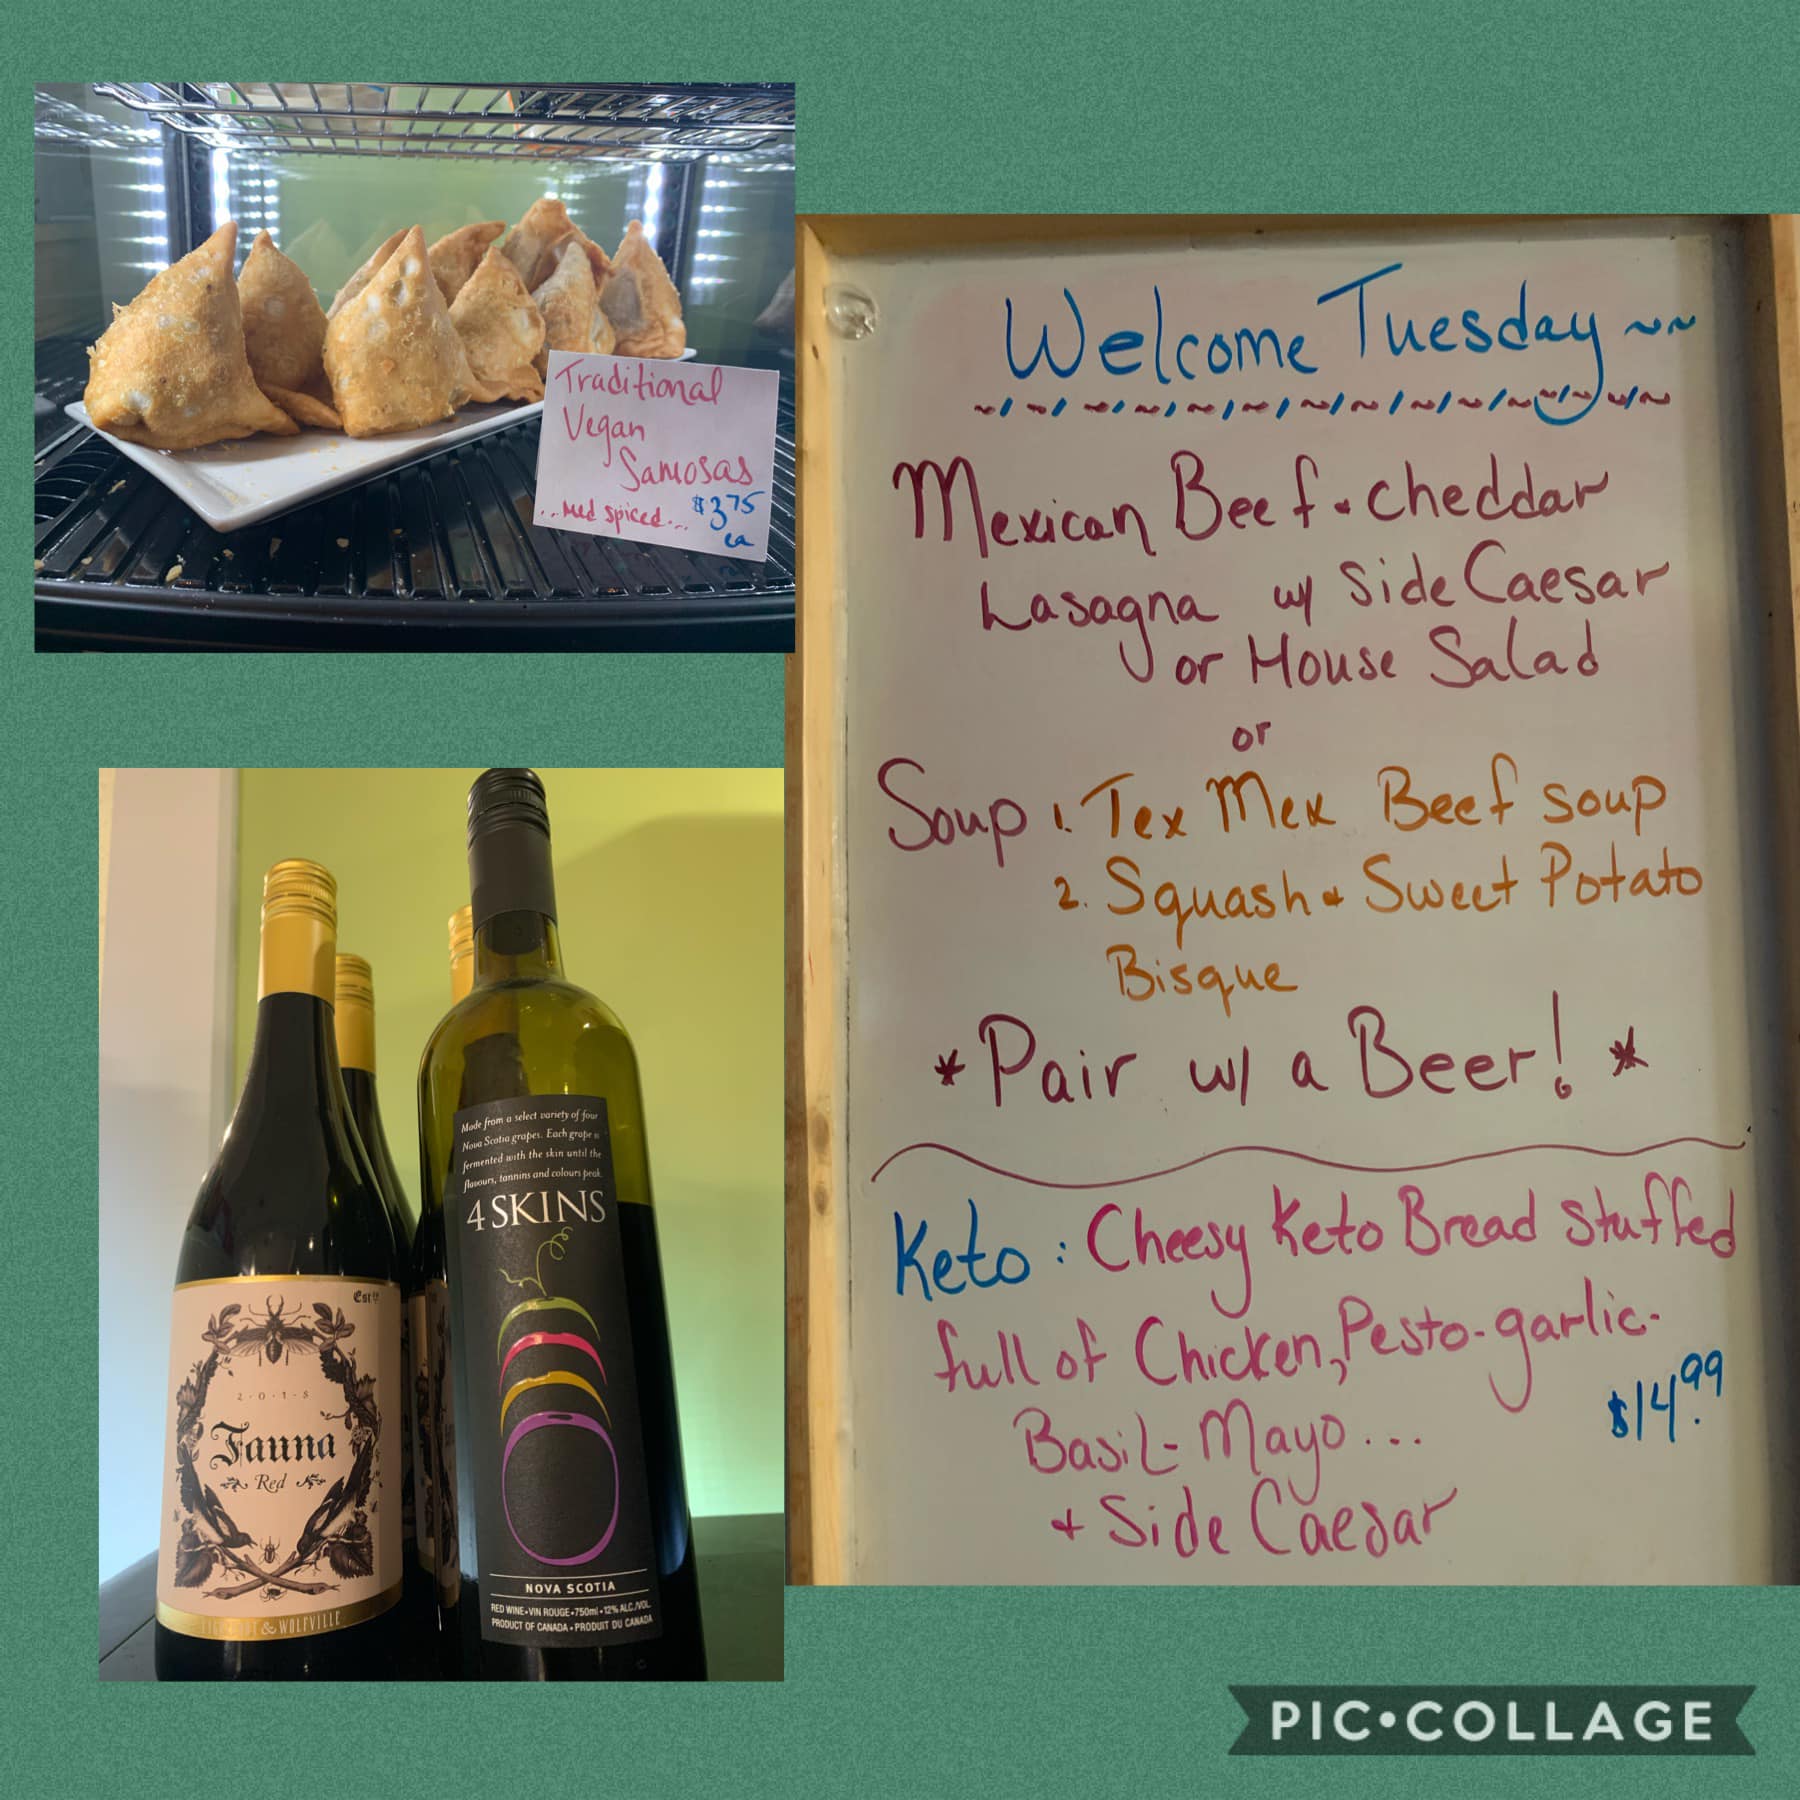 Traditional
Vegan
Samosas
..Med spiced... $3.75
ea
Welcome Tuesday ~~
Mexican Beef & cheddar
Lasagna w/ Side Caesar
or House Salad
or
Soup 1. Tex Mex Beef soup
2. Squash & Sweet Potato
Bisque
*Pair w/ a Beer! *
Keto: Cheesy Keto Bread stuffed
full of Chicken, Pesto-garlic-
Basil-Mayo... $14.99
+ Side Caesar
Est
2·0·1·8
Fauna
Red
& WOLFVILLE
Made from a select variety of four
Nova Scotia grapes. Each grape is
fermented with the skin until the
flavours, tannins and colours peak.
4 SKINS
NOVA SCOTIA
RED WINE•VIN ROUGE•750ml•12% ALC./VOL.
PRODUCT OF CANADA•PRODUIT DU CANADA
PIC•COLLAGE